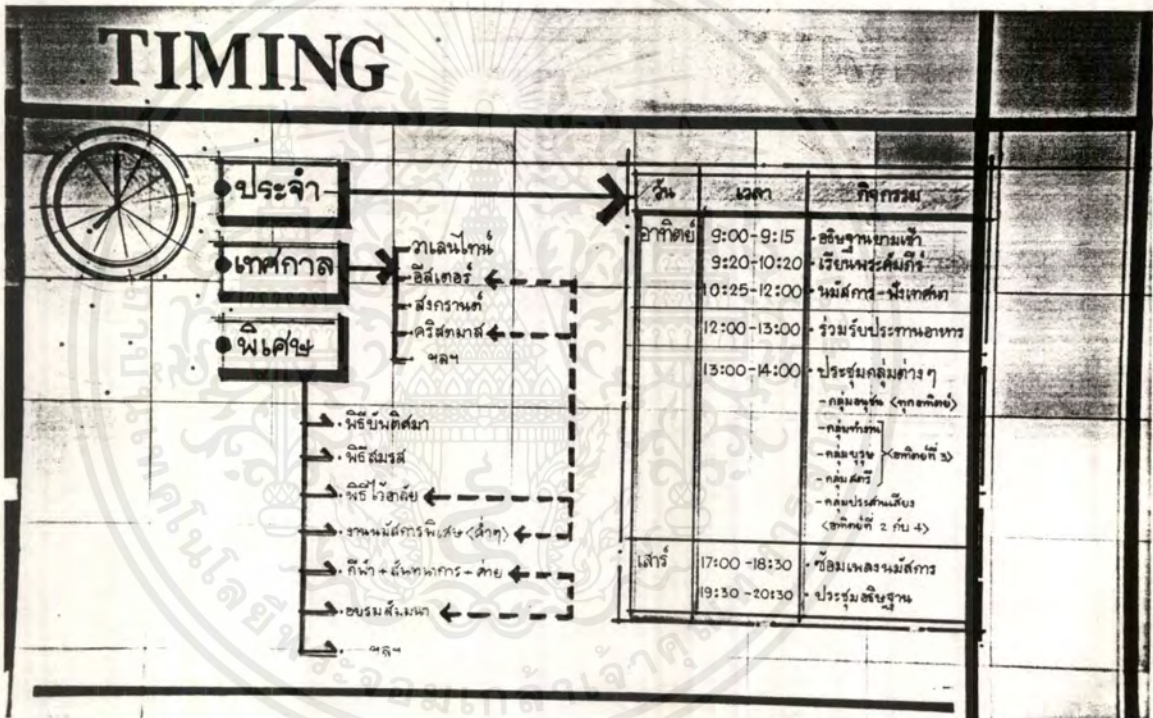 TIMING
ประจำ
เทศกาล
พิเศษ
วาเลนไทน์
อีสเตอร์
สงกรานต์
คริสตมาส
ฯลฯ
พิธีบัพติศมา
พิธีสมรส
พิธีไว้อาลัย
งานนมัสการพิเศษ <ค่ำๆ>
กีฬา + สันทนาการ + ค่าย
อบรมสัมมนา
ฯลฯ
วัน เวลา กิจกรรม
อาทิตย์ 9:00-9:15 • อธิษฐานยามเช้า
9:20-10:20 • เรียนพระคัมภีร์
10:25-12:00 • นมัสการ-ฟังเทศนา
12:00-13:00 • ร่วมรับประทานอาหาร
13:00-14:00 • ประชุมกลุ่มต่างๆ
- กลุ่มอนุชน <ทุกอาทิตย์>
- กลุ่มทำงาน
- กลุ่มบุรุษ <อาทิตย์ที่ 3>
- กลุ่มสตรี
- กลุ่มประสานเสียง
<อาทิตย์ที่ 2 กับ 4>
เสาร์ 17:00-18:30 • ซ้อมเพลงนมัสการ
19:30-20:30 • ประชุมอธิษฐาน